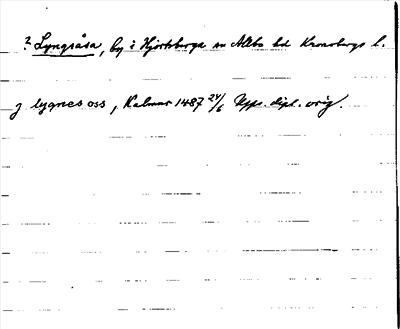 ? Lyngsåsa, by i Hjortsberga sn Allbo hd Kronobergs l.
j lygnes oss, Kalmar 1487 24/6 Upps. dipl. orig.